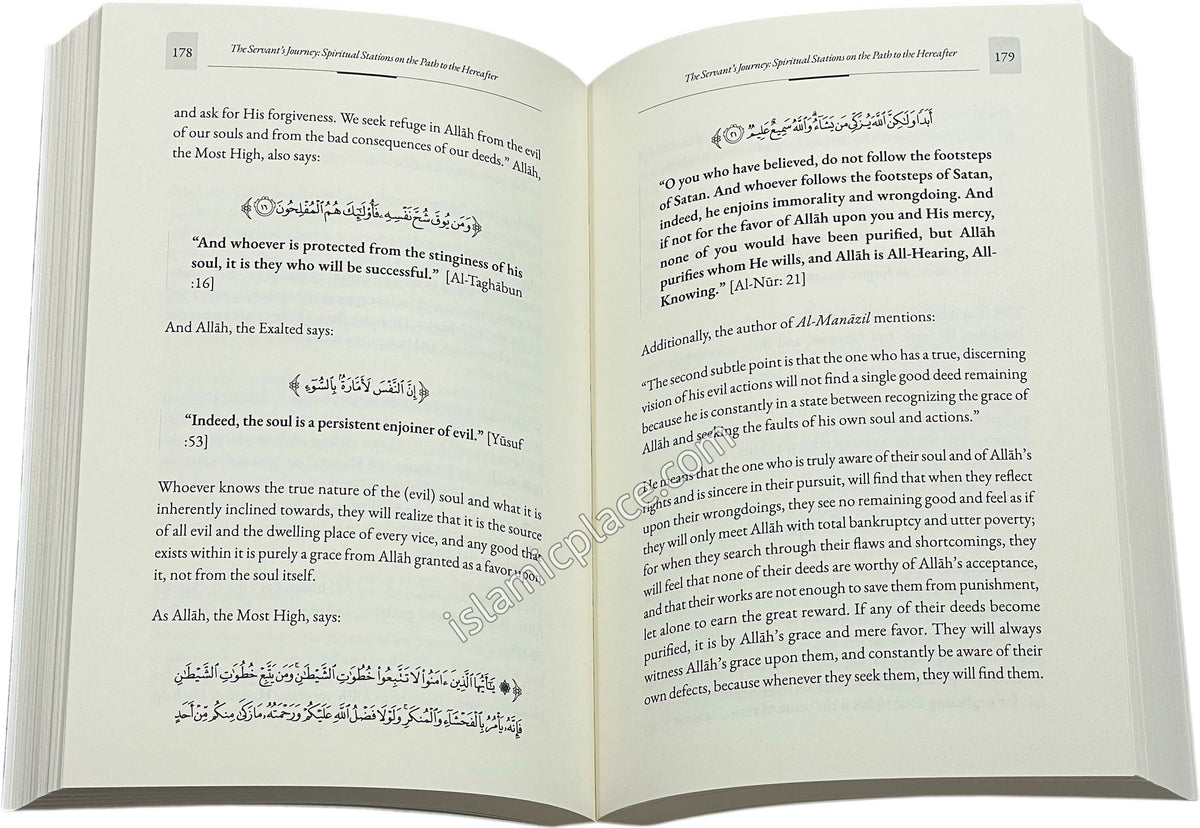 178
The Servant's Journey: Spiritual Stations on the Path to the Hereafter
and ask for His forgiveness. We seek refuge in Allāh from the evil
of our souls and from the bad consequences of our deeds." Allāh,
the Most High, also says:
﴿وَمَن يُوقَ شُحَّ نَفْسِهِۦ فَأُوْلَـٰٓئِكَ هُمُ ٱلْمُفْلِحُونَ ١٦﴾
"And whoever is protected from the stinginess of his
soul, it is they who will be successful." [Al-Taghābun
:16]
And Allāh, the Exalted says:
﴿إِنَّ ٱلنَّفْسَ لَأَمَّارَةٌۢ بِٱلسُّوٓءِ﴾
"Indeed, the soul is a persistent enjoiner of evil." [Yūsuf
:53]
Whoever knows the true nature of the (evil) soul and what it is
inherently inclined towards, they will realize that it is the source
of all evil and the dwelling place of every vice, and any good that
exists within it is purely a grace from Allāh granted as a favor upon
it, not from the soul itself.
As Allāh, the Most High, says:
﴿۞ يَـٰٓأَيُّهَا ٱلَّذِينَ ءَامَنُوا۟ لَا تَتَّبِعُوا۟ خُطُوَٰتِ ٱلشَّيْطَـٰنِ ۚ وَمَن يَتَّبِعْ خُطُوَٰتِ ٱلشَّيْطَـٰنِ
فَإِنَّهُۥ يَأْمُرُ بِٱلْفَحْشَآءِ وَٱلْمُنكَرِ ۚ وَلَوْلَا فَضْلُ ٱللَّهِ عَلَيْكُمْ وَرَحْمَتُهُۥ مَا زَكَىٰ مِنكُم مِّنْ أَحَدٍ
179
The Servant's Journey: Spiritual Stations on the Path to the Hereafter
أَبَدًا وَلَـٰكِنَّ ٱللَّهَ يُزَكِّى مَن يَشَآءُ ۗ وَٱللَّهُ سَمِيعٌ عَلِيمٌ ٢١﴾
"O you who have believed, do not follow the footsteps
of Satan. And whoever follows the footsteps of Satan,
indeed, he enjoins immorality and wrongdoing. And
if not for the favor of Allāh upon you and His mercy,
none of you would have been purified, but Allāh
purifies whom He wills, and Allāh is All-Hearing, All-
Knowing." [Al-Nūr: 21]
Additionally, the author of Al-Manāzil mentions:
"The second subtle point is that the one who has a true, discerning
vision of his evil actions will not find a single good deed remaining
because he is constantly in a state between recognizing the grace of
Allāh and seeking the faults of his own soul and actions."
He means that the one who is truly aware of their soul and of Allāh's
rights and is sincere in their pursuit, will find that when they reflect
upon their wrongdoings, they see no remaining good and feel as if
they will only meet Allāh with total bankruptcy and utter poverty;
for when they search through their flaws and shortcomings, they
will feel that none of their deeds are worthy of Allāh's acceptance,
and that their works are not enough to save them from punishment,
let alone to earn the great reward. If any of their deeds become
purified, it is by Allāh's grace and mere favor. They will always
witness Allāh's grace upon them, and constantly be aware of their
own defects, because whenever they seek them, they will find them.
islamicplace.com